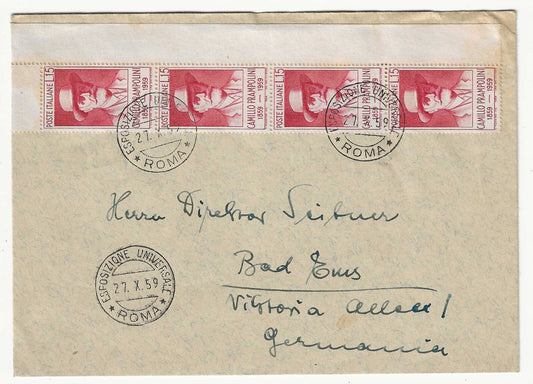 POSTE ITALIANE L.15 CAMILLO PRAMPOLINI 1859 — 1959
POSTE ITALIANE L.15 CAMILLO PRAMPOLINI 1859 — 1959
POSTE ITALIANE L.15 CAMILLO PRAMPOLINI 1859 — 1959
POSTE ITALIANE L.15 CAMILLO PRAMPOLINI 1859 — 1959
ESPOSIZIONE UNIVERSALE
27.X.59
* ROMA *
ESPOSIZIONE UNIVERSALE
27.X.59
* ROMA *
Herrn Direktor
Bad Ems
Viktoria Allee 1
Germania
ESPOSIZIONE UNIVERSALE
27.X.59
* ROMA *